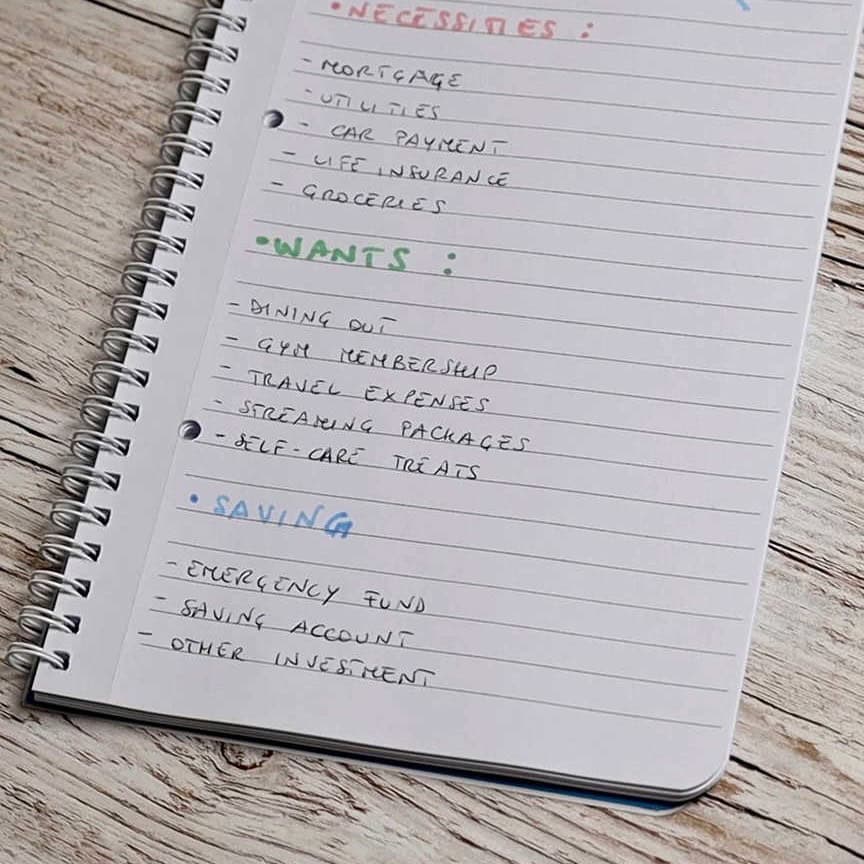 •NECESSITIES :
- MORTGAGE
- UTILITIES
- CAR PAYMENT
- LIFE INSURANCE
- GROCERIES
•WANTS :
- DINING OUT
- GYM MEMBERSHIP
- TRAVEL EXPENSES
- STREAMING PACKAGES
- SELF-CARE TREATS
• SAVING
- EMERGENCY FUND
- SAVING ACCOUNT
- OTHER INVESTMENT